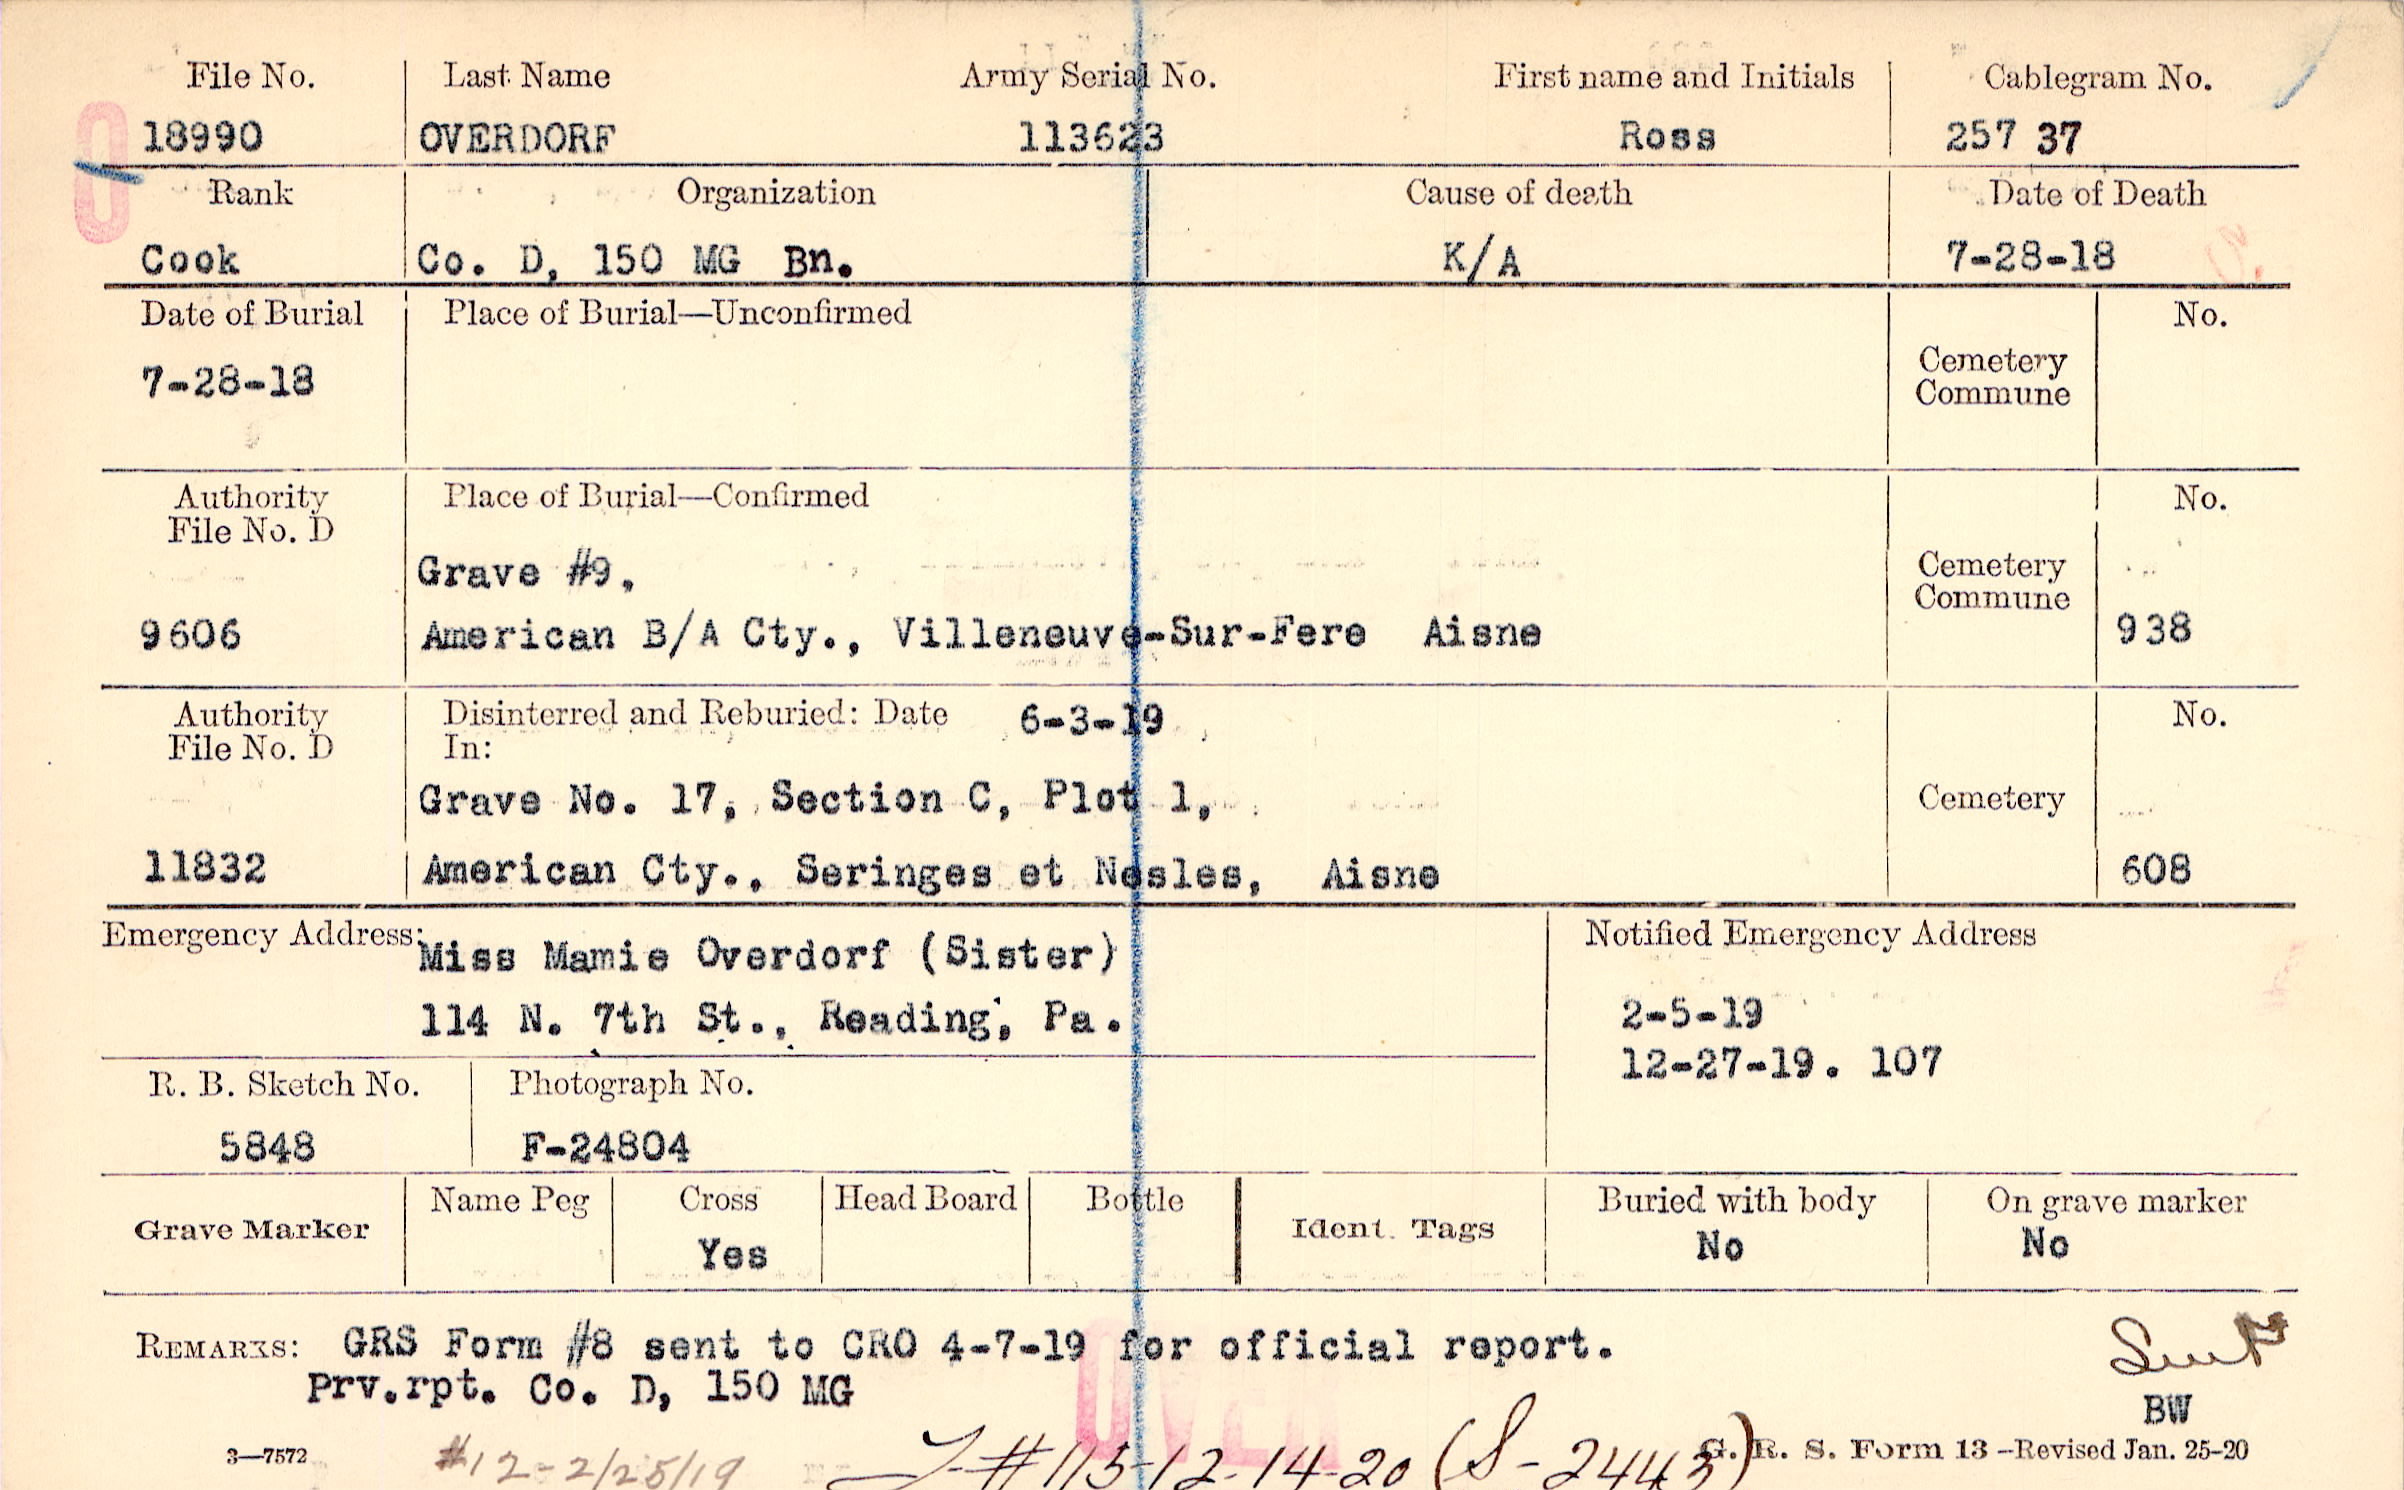 File No. Last Name Army Serial No. First name and Initials Cablegram No.
18990 OVERDORF 113623 Ross 257 37
Rank Organization Cause of death Date of Death
Cook Co. D, 150 MG Bn. K/A 7-28-18
Date of Burial Place of Burial—Unconfirmed No.
7-28-18 Cemetery
Commune
Authority Place of Burial—Confirmed No.
File No. D
Grave #9, Cemetery
Commune
9606 American B/A Cty., Villeneuve-Sur-Fere Aisne 938
Authority Disinterred and Reburied: Date 6-3-19 No.
File No. D In:
Grave No. 17, Section C, Plot 1, Cemetery
11832 American Cty., Seringes et Nesles, Aisne 608
Emergency Address: Miss Mamie Overdorf (Sister) Notified Emergency Address
114 N. 7th St., Reading, Pa. 2-5-19
12-27-19. 107
R. B. Sketch No. Photograph No.
5848 F-24804
Grave Marker Name Peg Cross Head Board Bottle Ident. Tags Buried with body On grave marker
Yes No No
REMARKS: GRS Form #8 sent to CRO 4-7-19 for official report.
Prv.rpt. Co. D, 150 MG
BW
OVER
3—7572 #12-2/25/19 #115-12-14-20 (S-2443) G. R. S. Form 13—Revised Jan. 25-20